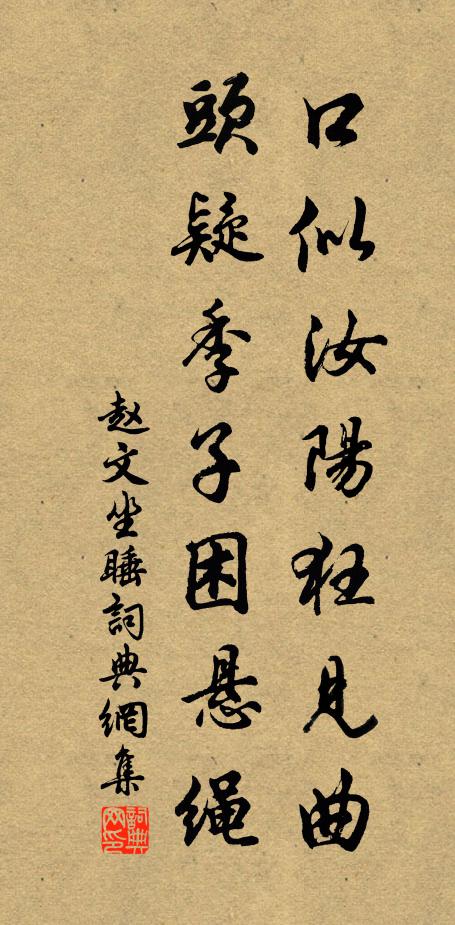 口似汝陽狂見曲
頭疑季子困悬绳
赵文坐睡詞典網集
詞典网印